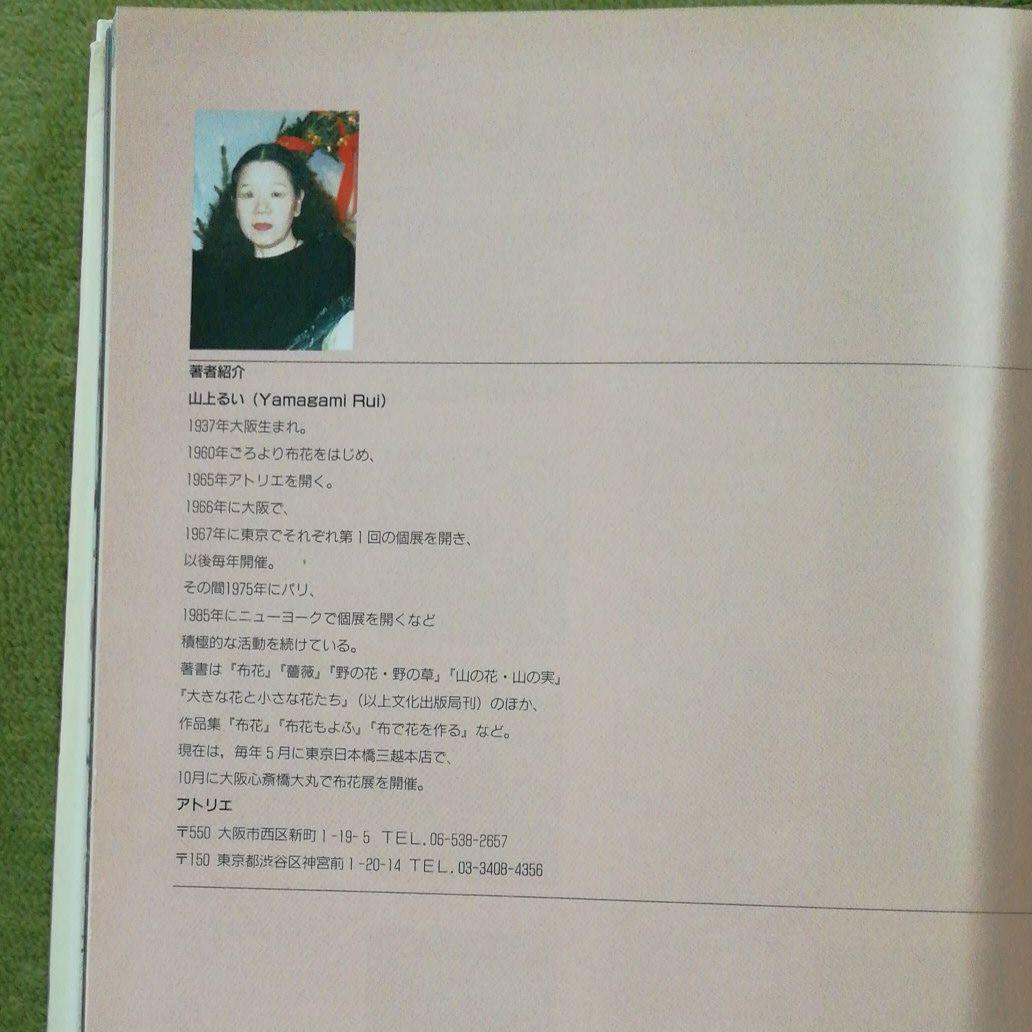 著者紹介
山上るい（Yamagami Rui）
1937年大阪生まれ。
1960年ごろより布花をはじめ、
1965年アトリエを開く。
1966年に大阪で、
1967年に東京でそれぞれ第1回の個展を開き、
以後毎年開催。
その間1975年にパリ、
1985年にニューヨークで個展を開くなど
積極的な活動を続けている。
著書は『布花』『薔薇』『野の花・野の草』『山の花・山の実』
『大きな花と小さな花たち』（以上文化出版局刊）のほか、
作品集『布花』『布花もよふ』『布で花を作る』など。
現在は，毎年5月に東京日本橋三越本店で、
10月に大阪心斎橋大丸で布花展を開催。
アトリエ
〒550 大阪市西区新町1-19-5 TEL.06-538-2657
〒150 東京都渋谷区神宮前1-20-14 TEL.03-3408-4356